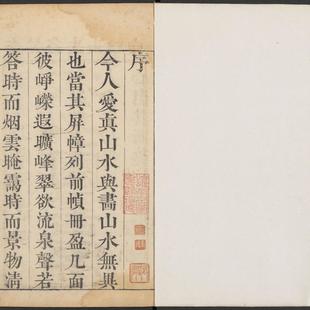 序
今人愛真山水與畫山水無異
也當其屏幛列前幀冊盈几面
彼崢嶸遐曠峰翠欲流泉聲若
答時而烟雲晻靄時而景物淸